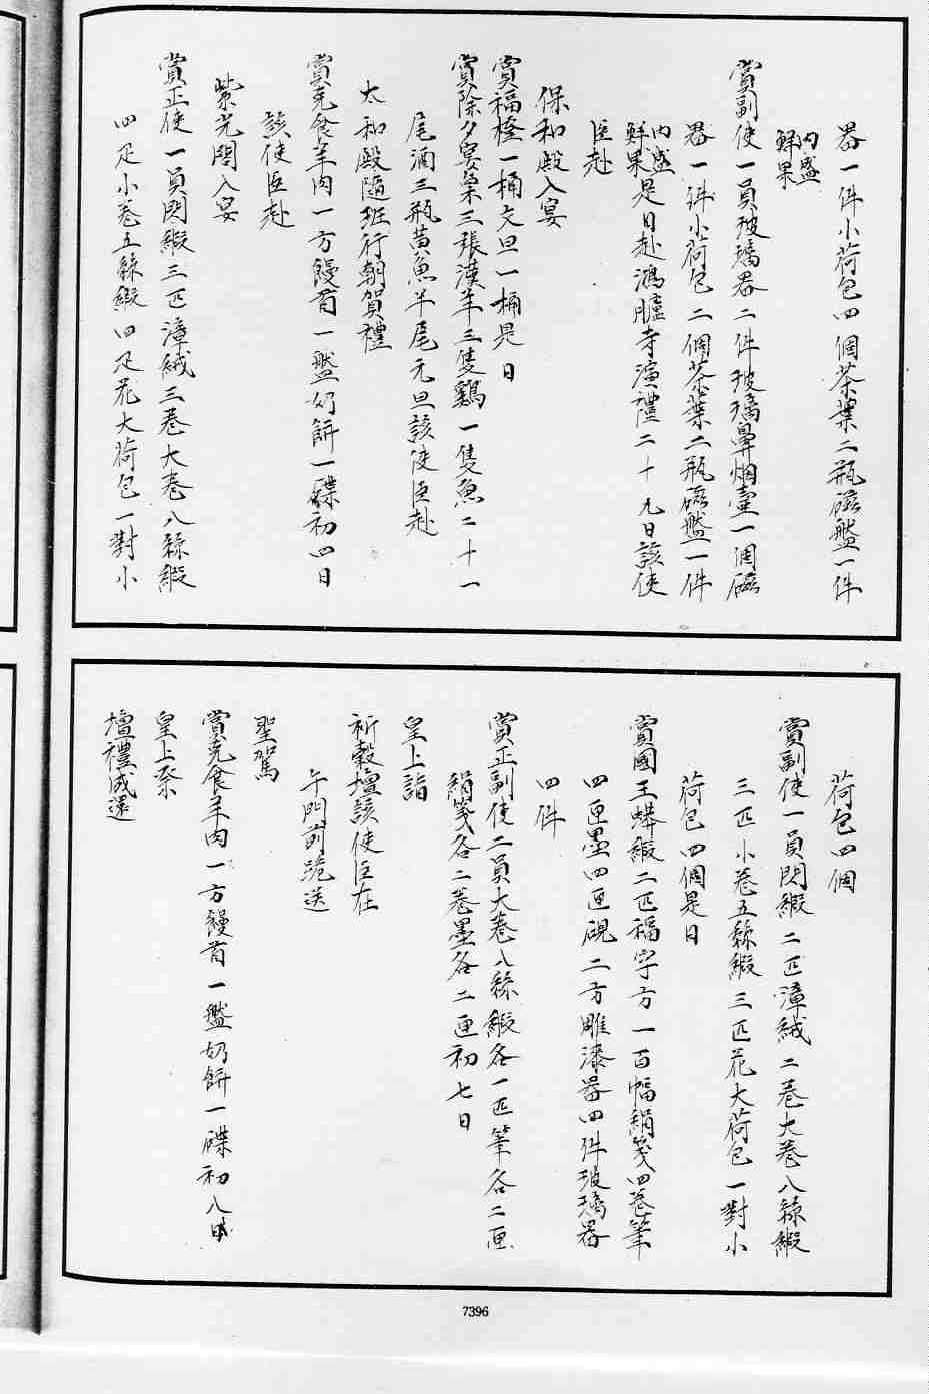 器一件小荷包四個茶葉二瓶磁盤一件
內盛
鮮果
賞副使一員玻璃器二件玻璃鼻烟壺一個磁
器一件小荷包二個茶葉二瓶磁盤一件
內盛
鮮果是日赴鴻臚寺演禮二十九日該使
臣赴
保和殿入宴
賞福橙一桶文旦一桶是日
賞除夕宴桌三張漢羊三隻鷄一隻魚二十一
尾酒三瓶黃魚羊尾元旦該使臣赴
太和殿隨班行朝賀禮
賞克食羊肉一方饅首一盤奶餅一碟初四日
該使臣赴
紫光閣入宴
賞正使一員閃緞三匹漳絨三卷大卷八絲緞
四疋小卷五絲緞四疋花大荷包一對小
荷包四個
賞副使一員閃緞二匹漳絨二卷大卷八絲緞
三匹小卷五絲緞三匹花大荷包一對小
荷包四個是日
賞國王蟒緞二匹福字方一百幅絹箋四卷筆
四匣墨四匣硯二方雕漆器四件玻璃器
四件
賞正副使二員大卷八絲緞各一匹筆各二匣
絹箋各二卷墨各二匣初七日
皇上詣
祈穀壇該使臣在
午門前跪送
聖駕
賞克食羊肉一方饅首一盤奶餅一碟初八日
皇上祭
壇禮成還
7396